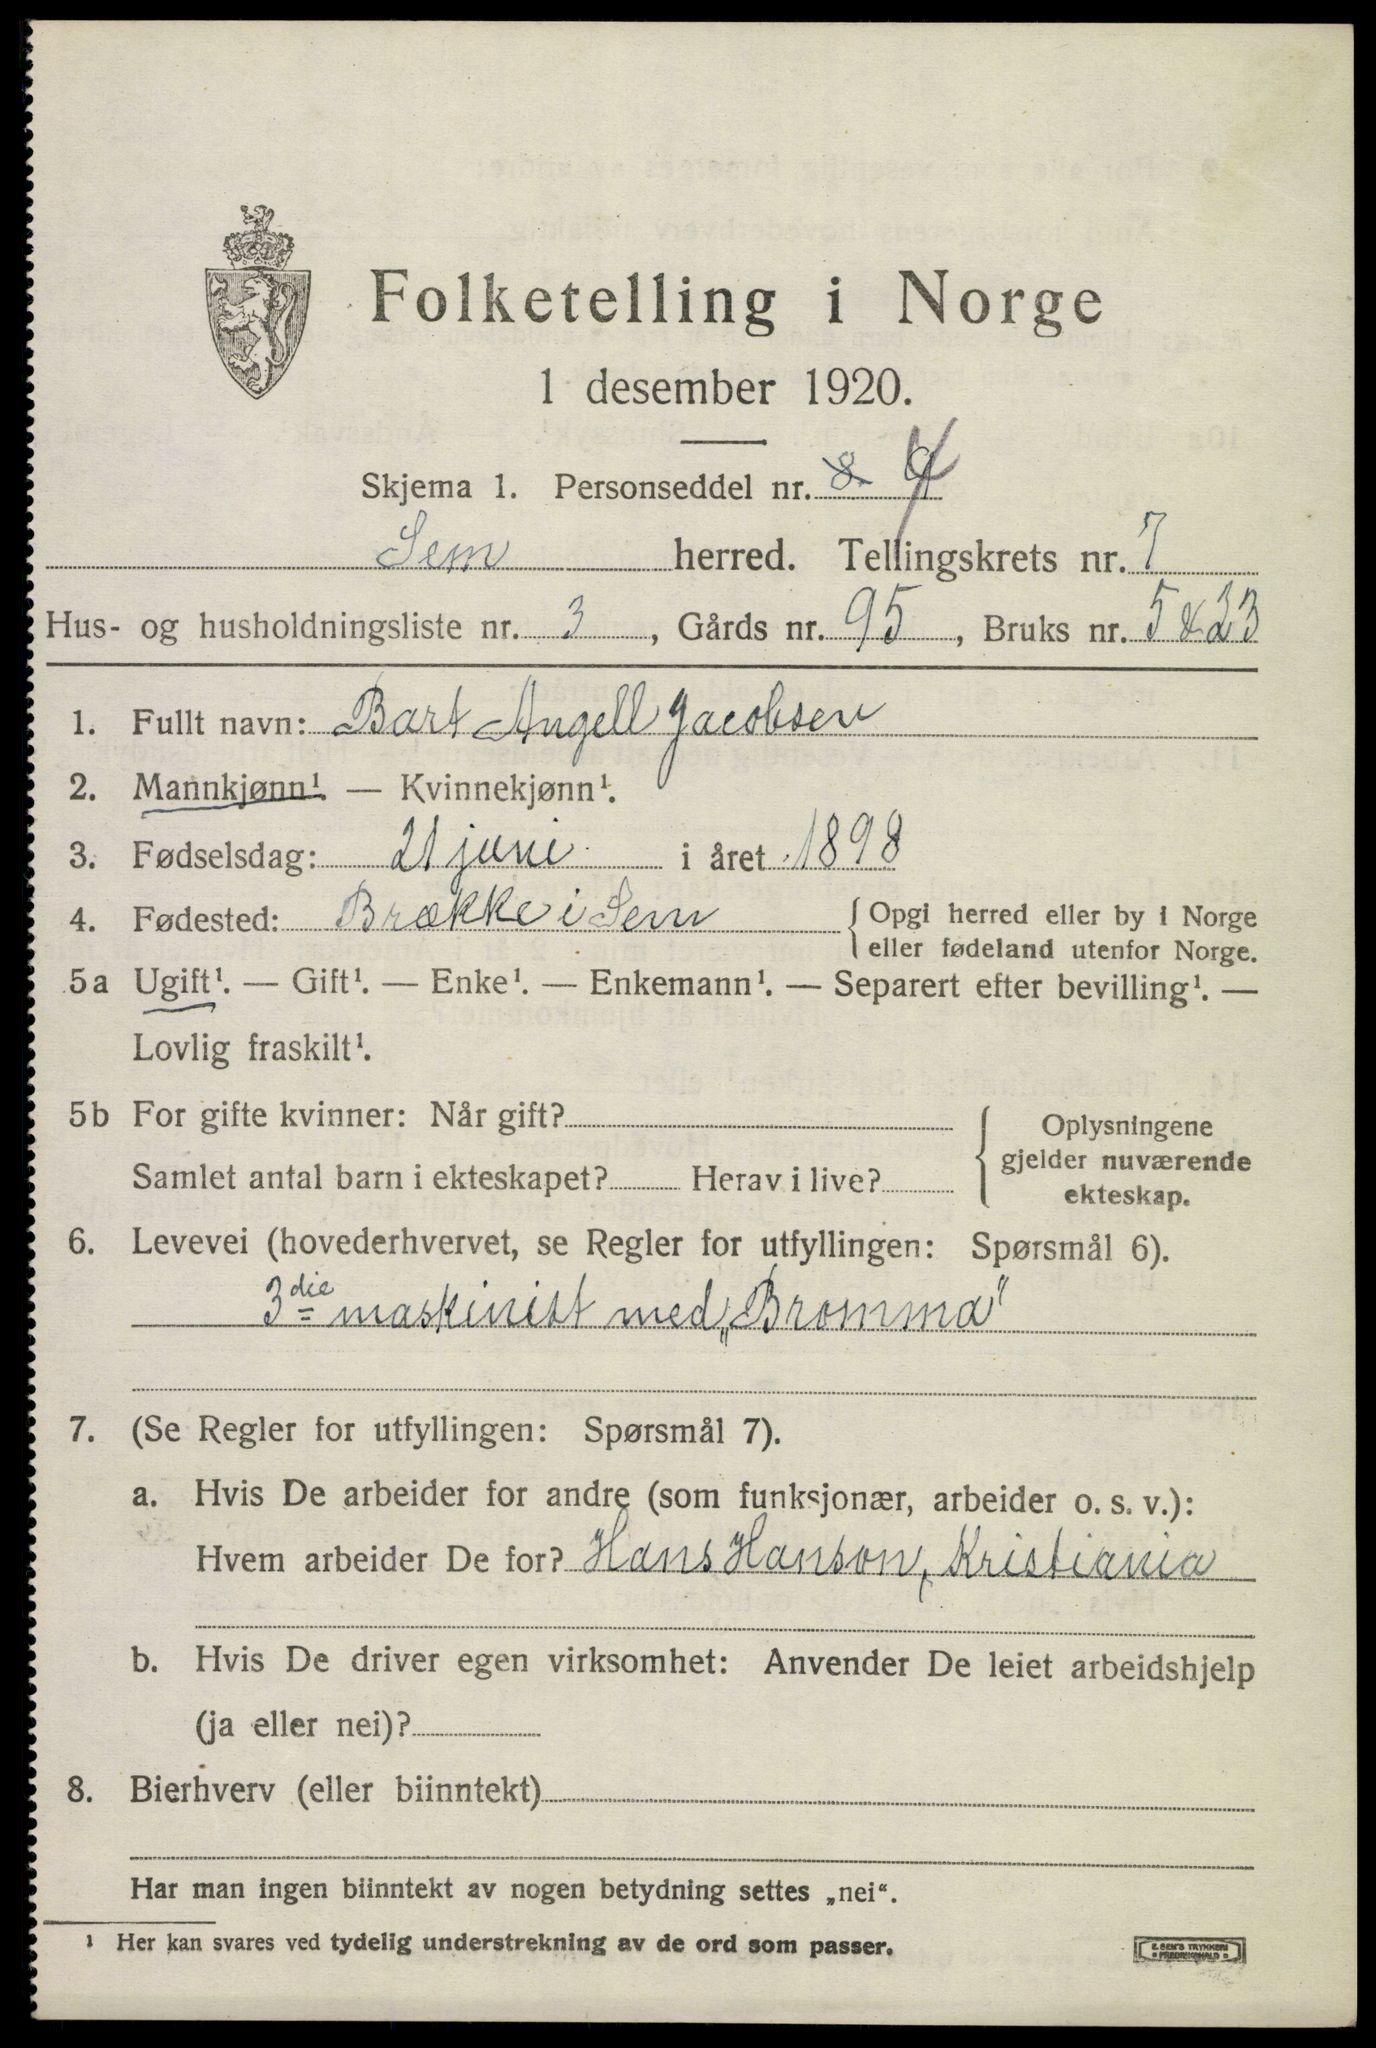 Folketelling i Norge
1 desember 1920.
Skjema 1. Personseddel nr. 8.
Sem herred. Tellingskrets nr. 7
Hus- og husholdningsliste nr. 3, Gårds nr. 95, Bruks nr. 5 & 23
1. Fullt navn: Bart Angell Jacobsen
2. Mannkjønn¹. — Kvinnekjønn¹.
3. Fødselsdag: 21 juni i året 1898
4. Fødested: Brække i Sem { Opgi herred eller by i Norge
eller fødeland utenfor Norge.
5a Ugift¹. — Gift¹. — Enke¹. — Enkemann¹. — Separert efter bevilling¹. —
Lovlig fraskilt¹.
5b For gifte kvinner: Når gift? { Oplysningene
gjelder nuværende
Samlet antal barn i ekteskapet? Herav i live?
ekteskap.
6. Levevei (hovederhvervet, se Regler for utfyllingen: Spørsmål 6).
3die maskinist med „Bromma"
7. (Se Regler for utfyllingen: Spørsmål 7).
a. Hvis De arbeider for andre (som funksjonær, arbeider o. s. v.):
Hvem arbeider De for? Hans Hanson, Kristiania
b. Hvis De driver egen virksomhet: Anvender De leiet arbeidshjelp
(ja eller nei)?
8. Bierhverv (eller biinntekt)
Har man ingen biinntekt av nogen betydning settes „nei".
¹ Her kan svares ved tydelig understrekning av de ord som passer.
E. SEM'S TRYKKERI
FREDRIKSHALD